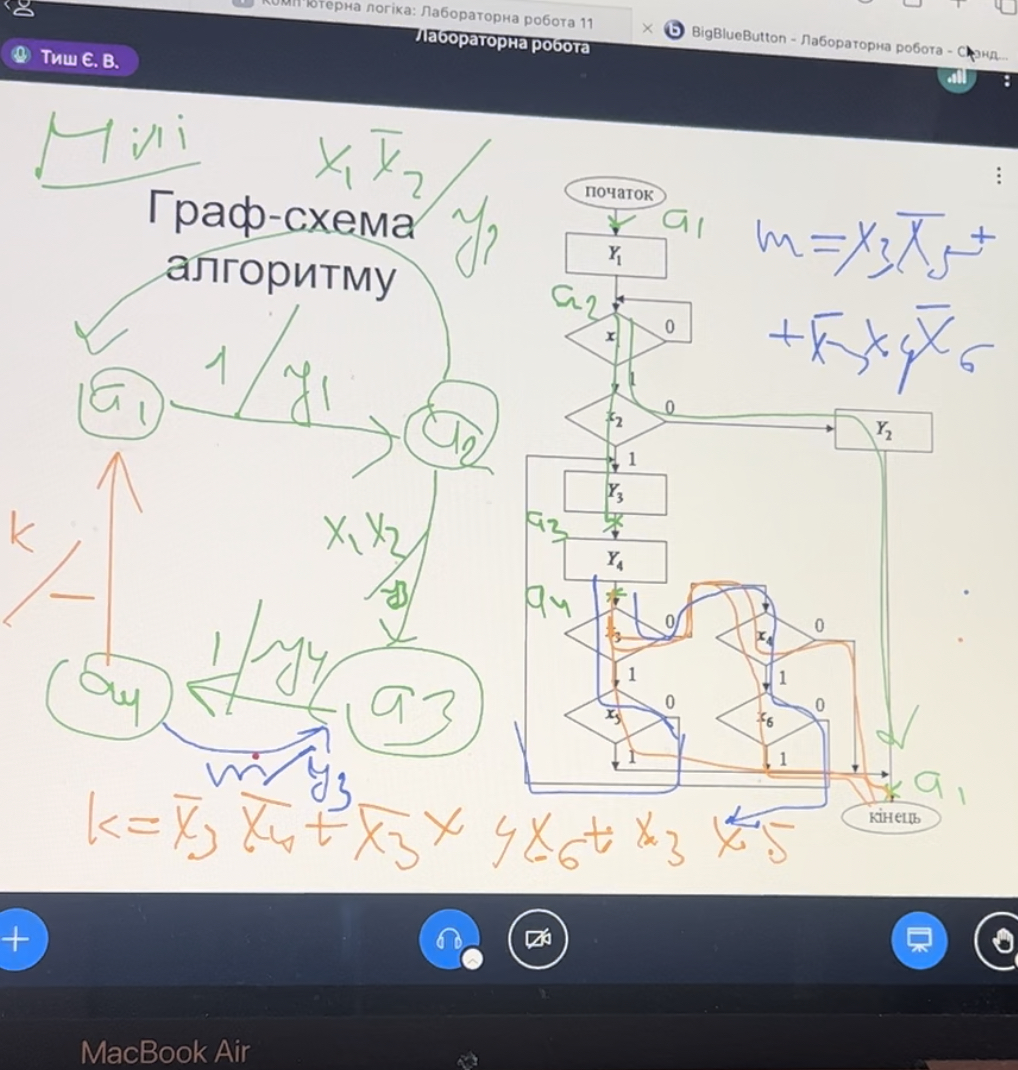 Комп'ютерна логіка: Лабораторна робота 11
BigBlueButton - Лабораторна робота -
Лабораторна робота
Тиш Є. В.
Мілі
x₁ x̅₂ / y₂
Граф-схема
алгоритму
a₁
1 / y₁
a₂
x₁ x₂
k / –
a₄
1 / y₄
a₃
m / y₃
k = x̅₃ x̅₄ + x̅₃ x₄ x₆ + x₃ x₅
m = x₃ x̅₅ +
+ x̅₃ x₄ x̅₆
початок
a₁
Y₁
a₂
x
0
1
x₂
0
Y₂
1
Y₃
a₃
Y₄
a₄
x₃
0
x₄
0
1
1
x₅
0
x₆
0
1
1
a₁
кінець
MacBook Air